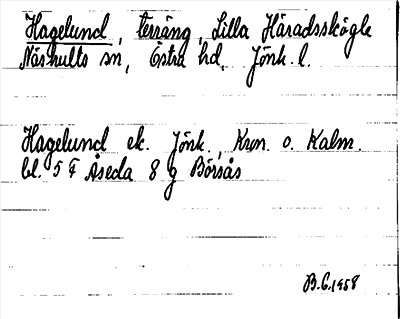 Hagelund, terräng, Lilla Häradsskögle
Näshults sn, Östra hd, Jönk. l.
Hagelund ek. Jönk., Kron. o. Kalm.
bl. 5 F Åseda 8 g Börsås
B.G. 1958